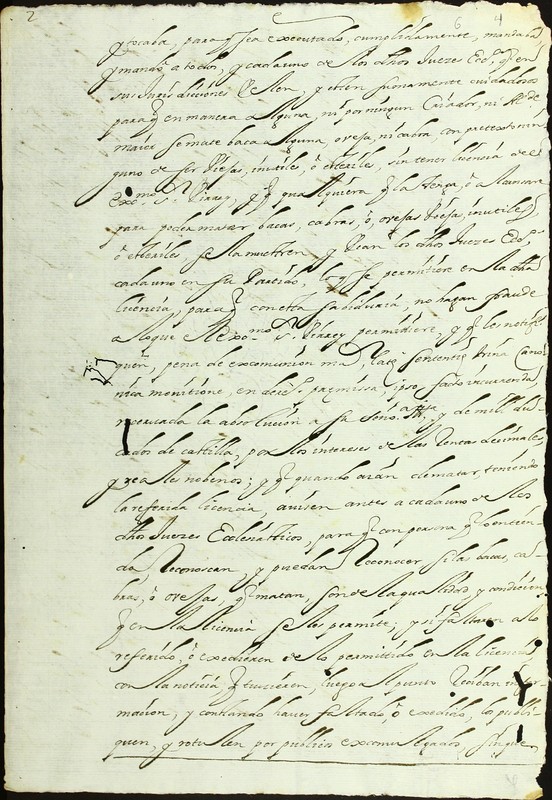 2 6 4
y tocaba, para q̃ sea executado, cumplidamente, mandaba
y mandó, a todos, y cada uno de los dhos Juezes Ecc.cos q̃ en
sus Jurisdicciones celen, y esten sumamente cuidadosos
para q̃ en manera alguna, ni por ningun Criador, ni
maior se mate baca alguna, oveja, ni cabra, con pretexto nin
guno de ser viejas, inutiles, ó esteriles, sin tener licencia de el
exc.mo S.r Virrey, y q̃ qualquiera q̃ la tenga, ó alcansare
para poder matar bacas, cabras, ó, ovejas viejas, inutiles,
ó esteriles, se la muestren, y vean los dhos Juezes Ecc.cos
cada uno en su Partido, lo q̃ se permitiere en la dha
licencia, para q̃ con esta sabiduria, no hagan fraude
a lo que el exc.mo S.r Virrey permitiere, y q̃ les notifi
quen, pena de excomunion maior, latę sententię trina Cano
nica monitione, en derecho pręmissa ipso facto incurrenda,
reservada la absolucion a su señoria Ill.ma y de mil du
cados de castilla, por los intereses de las rentas decimales,
y Reales nobenos; y q̃ quando aian de matar, teniendo
la referida licencia, avisen antes a cada uno de los
dhos Juezes Ecclesiasticos, para q̃ con persona q̃ lo entien
da, reconoscan, y puedan reconocer si las bacas, ca
bras, ó ovejas, q̃ matan, son de la qualidad, y condicion
q̃ en la licencia se les permite; y si faltaren a lo
referido, ó excedieren de lo permittido en la licencia
con la noticia q̃ tuvieren, luego al punto reciban infor
macion, y constando haver faltado, ó excedido, los publi
quen, y rotulen por publicos excomulgados, sin que